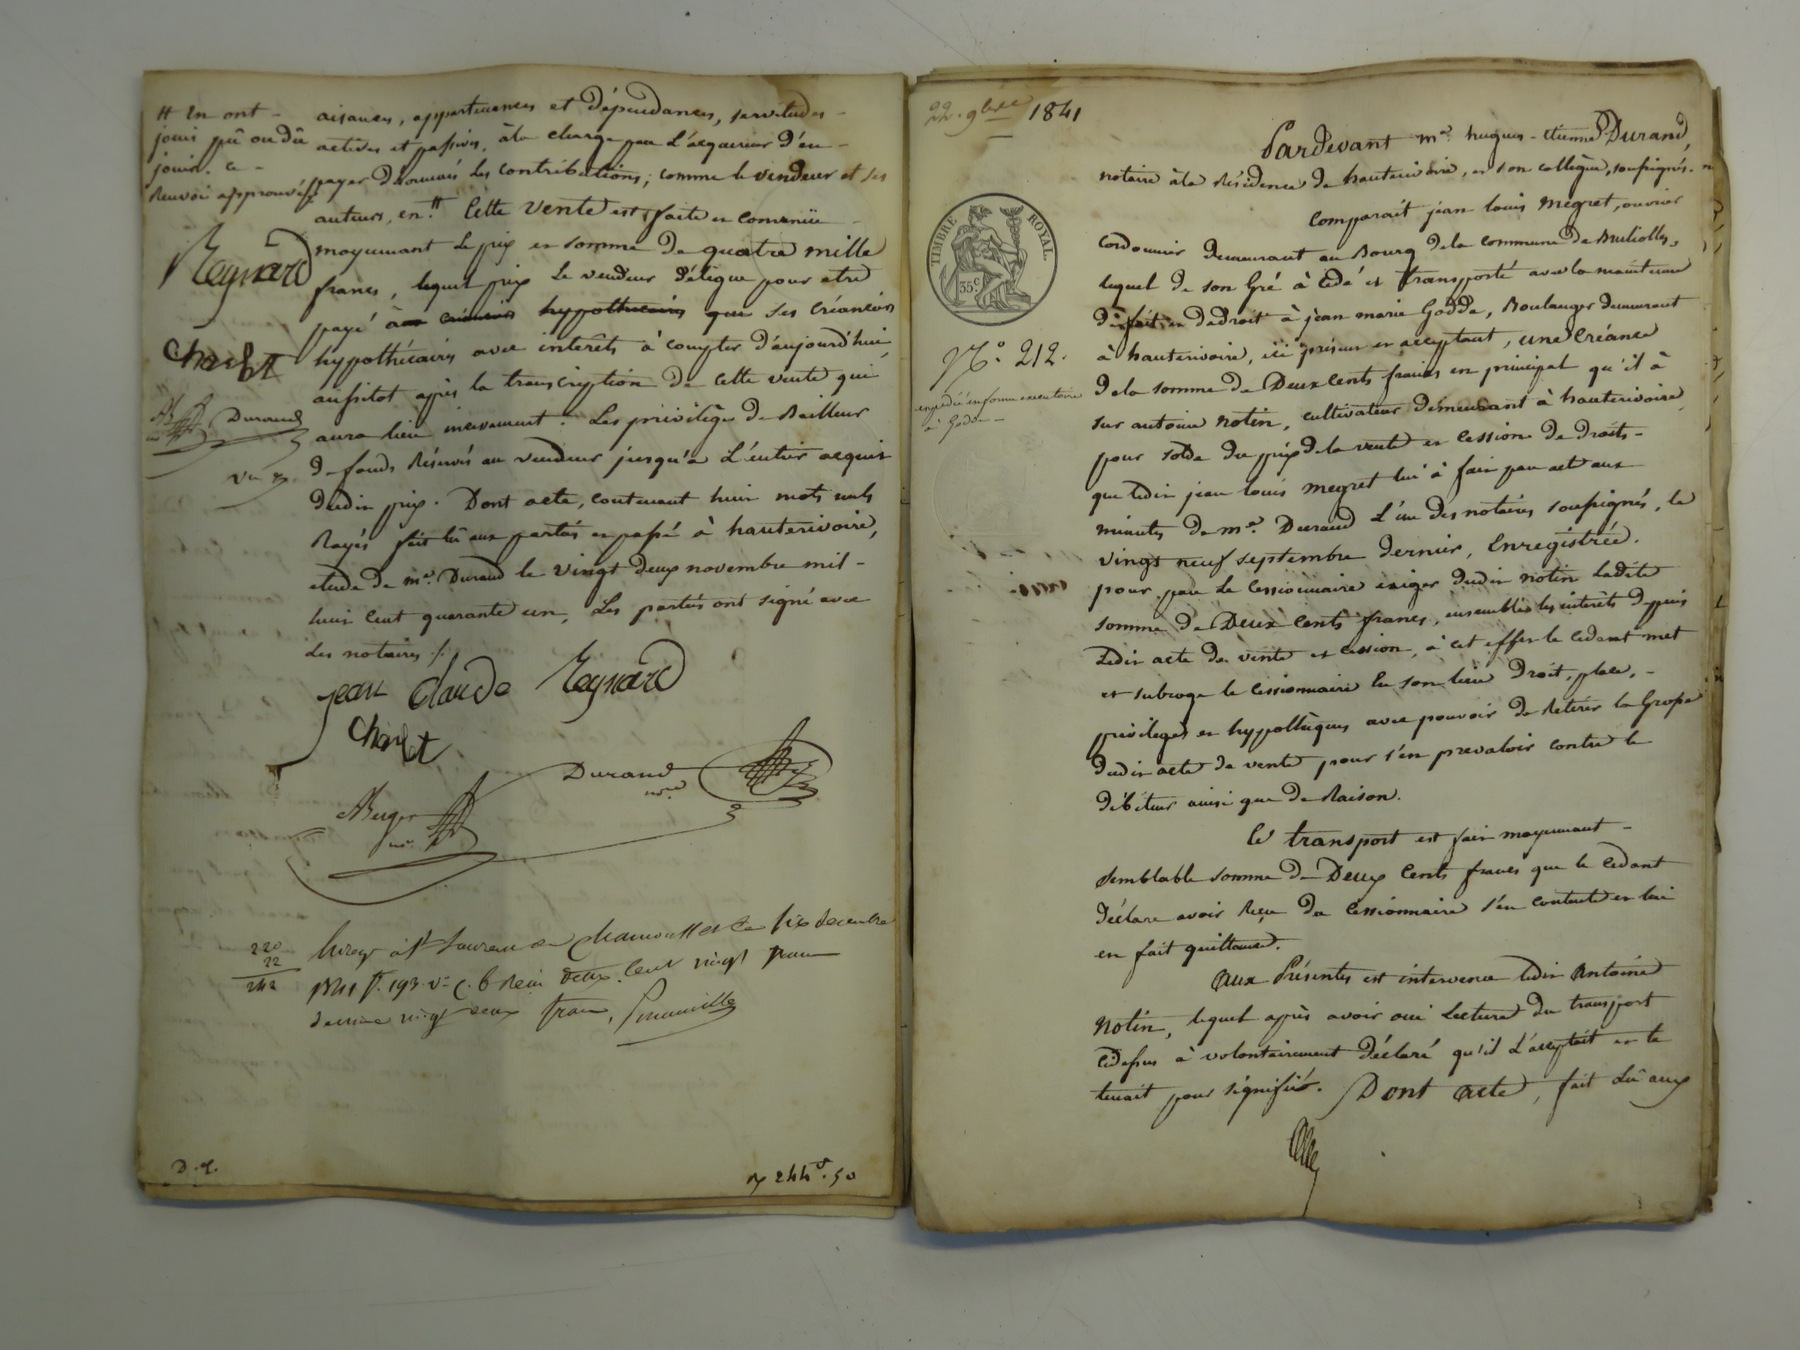 # en ont
joui pû ou dû
jouir. ce
Renvoi approuvé
Reynard
Charlet
Durand
aisances, appartenances et dépendances, servitudes
actives et passives, à la charge par L'acquereur d'en
payer désormais les contributions, comme le vendeur et ses
auteurs, en # Cette vente est faite et convenüe
moyennant le prix et somme de quatre mille
francs, lequel prix le vendeur délègue pour etre
payé à ses créanciers
hypothécaires avec intérêts à compter d'aujourd'hui,
aussitot après la transcription de cette vente qui
aura lieu incessament. Les privilèges de Bailleur
de fonds Réservés au vendeur jusqu'à L'entier acquit
dudit prix. Dont acte, contenant huit mots nuls
Rayés fait lû aux parties et passé à hauterivoire,
etude de me. Durand le vingt deux novembre mil
huit cent quarante un, Les parties ont signé avec
les notaires ./.
jean Claude Reynard
Charlet
Durand
nre
Berger
nre
Enregé à St Laurent de Chamousset le six decembre
1841 f. 193 vo c. 6 Reçu deux cent vingt francs
decime vingt deux francs,
220
22
242
244 f. 50
22. 9bre 1841
TIMBRE ROYAL
35 c
No. 212.
expédié en forme executoire
à Godde
Pardevant me. hugues-etienne Durand,
notaire à la Résidence de hauterivoire, et son collègue, soussignés.
Comparait jean louis Megret, ouvrier
cordonnier demeurant au Bourg de la commune de Brulioles,
lequel de son Gré à cédé et transporté avec la maintenue
de fait et de droit à jean marie Godde, Boulanger demeurant
à hauterivoire, ici présent et acceptant, une Créance
de la somme de Deux cents francs en principal qu'il à
sur antoine Notin, cultivateur demeurant à hauterivoire,
pour solde du prix de la vente et cession de droits
que ledit jean louis Megret lui à fait par act aux
minutes de me. Durand L'un des notaires soussignés, le
vingt neuf septembre dernier, Enregistrée.
pour par le cessionnaire exiger dudit Notin ladite
somme de Deux cents francs, ensembles les intérêts depuis
Ledit acte de vente et cession, à cet effet le cedant met
et subroge le cessionnaire En son lieu Droit, place,
privileges et hypothèques avec pouvoir de Retirer la Grosse
dudit acte de vente pour s'en prevaloir contre le
débiteur ainsi que de Raison.
Ce transport est fait moyennant
semblable somme de Deux cents francs que le cedant
déclare avoir Reçu du cessionnaire s'en contente et lui
en fait quittance.
Aux Présentes est intervenu ledit Antoine
Notin, lequel après avoir oui Lecture du transport
cidessus à volontairement déclaré qu'il L'acceptait et le
tenait pour signifié. Dont Acte, fait Lû aux